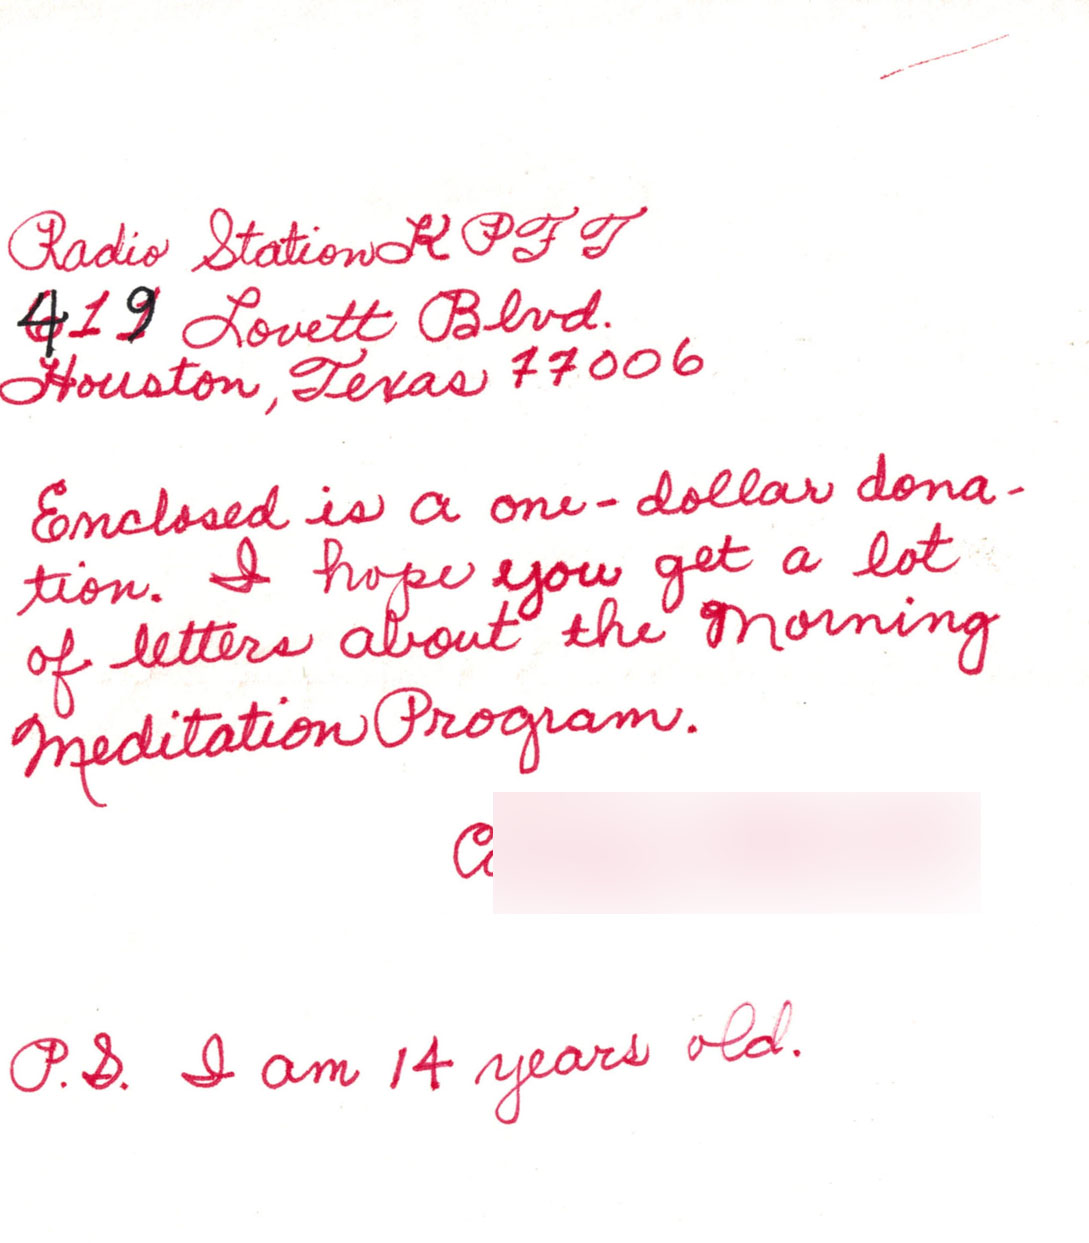 Radio Station KPFT
419 Lovett Blvd.
Houston, Texas 77006
Enclosed is a one-dollar dona-
tion. I hope you get a lot
of letters about the Morning
Meditation Program.
P.S. I am 14 years old.